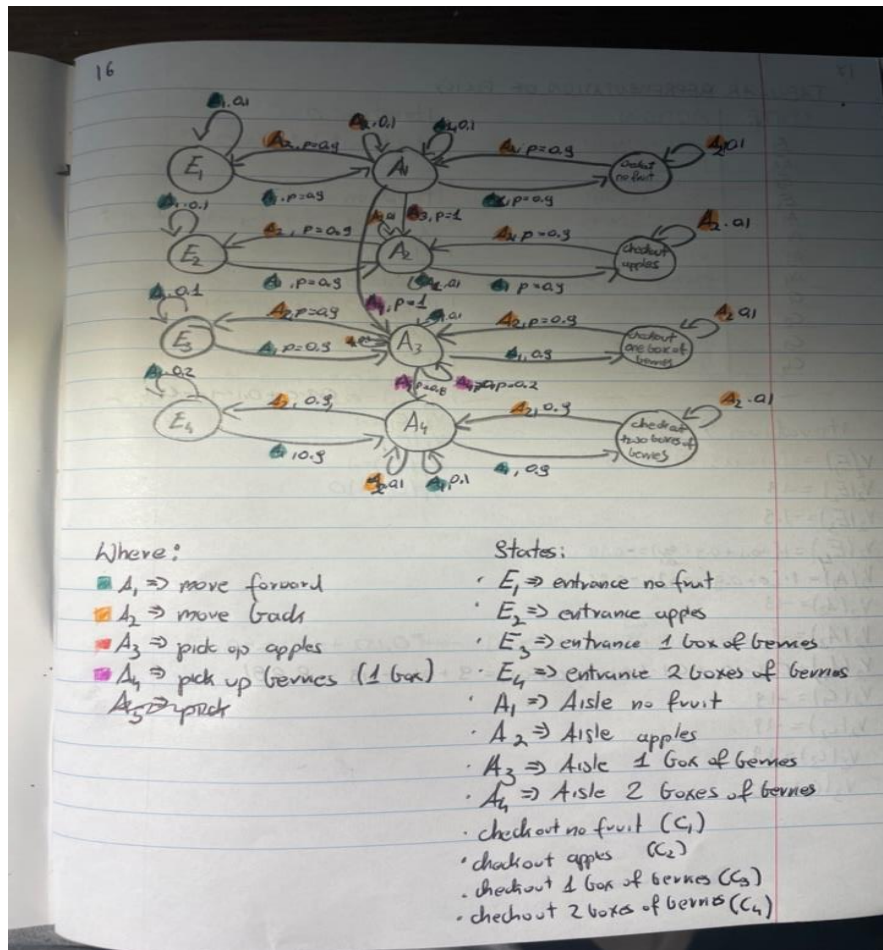 16
A1, 0.1
A2, p=0.9
A2, 0.1
A1, 0.1
A2, p=0.9
A2, 0.1
E1
A1
checkout no fruit
A1, p=0.9
A1, p=0.9
A1, 0.1
A2, p=0.9
A2, 0.1
A3, p=1
A2, p=0.9
A2, 0.1
E2
A2
checkout apples
A1, p=0.9
A1, 0.1
A1 p=0.9
A1, 0.1
A4, p=1
A2, p=0.9
A1, 0.1
A2, p=0.9
A2 0.1
E3
A3
checkout one box of berries
A1, p=0.9
A1, 0.9
A1, 0.2
A4 p=0.8
p=0.2
A2, 0.9
A2, 0.9
A2 0.1
E4
A4
checkout two boxes of berries
A1, 0.9
A1, 0.9
A2 0.1
A1, 0.1
Where:
A1 => move forward
A2 => move back
A3 => pick up apples
A4 => pick up berries (1 box)
A5 => pick
States:
· E1 => entrance no fruit
· E2 => entrance apples
· E3 => entrance 1 box of berries
· E4 => entrance 2 boxes of berries
· A1 => Aisle no fruit
· A2 => Aisle apples
· A3 => Aisle 1 box of berries
· A4 => Aisle 2 boxes of berries
· checkout no fruit (C1)
· checkout apples (C2)
· checkout 1 box of berries (C3)
· checkout 2 boxes of berries (C4)